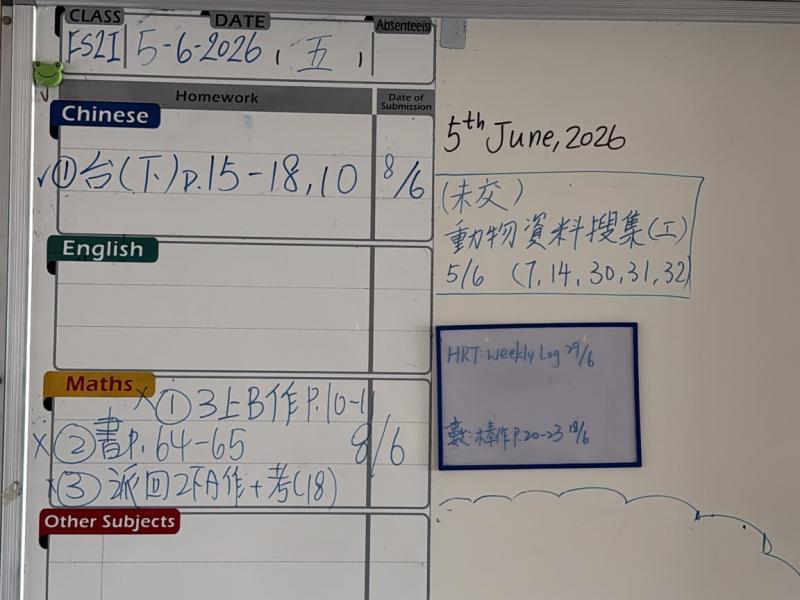 CLASS DATE Absentee(s)
FS2I 5-6-2026 ( 五 )
Homework Date of Submission
Chinese
① 台(下)p.15-18,10 8/6
English
Maths
① 3上B作P.10-11
② 書P.64-65 8/6
③ 派回2下A作+考(18)
Other Subjects
5th June, 2026
(未交)
動物資料搜集(工)
5/6 (7,14,30,31,32)
HRT: Weekly Log 29/6
數:棒作P.20-23 18/6